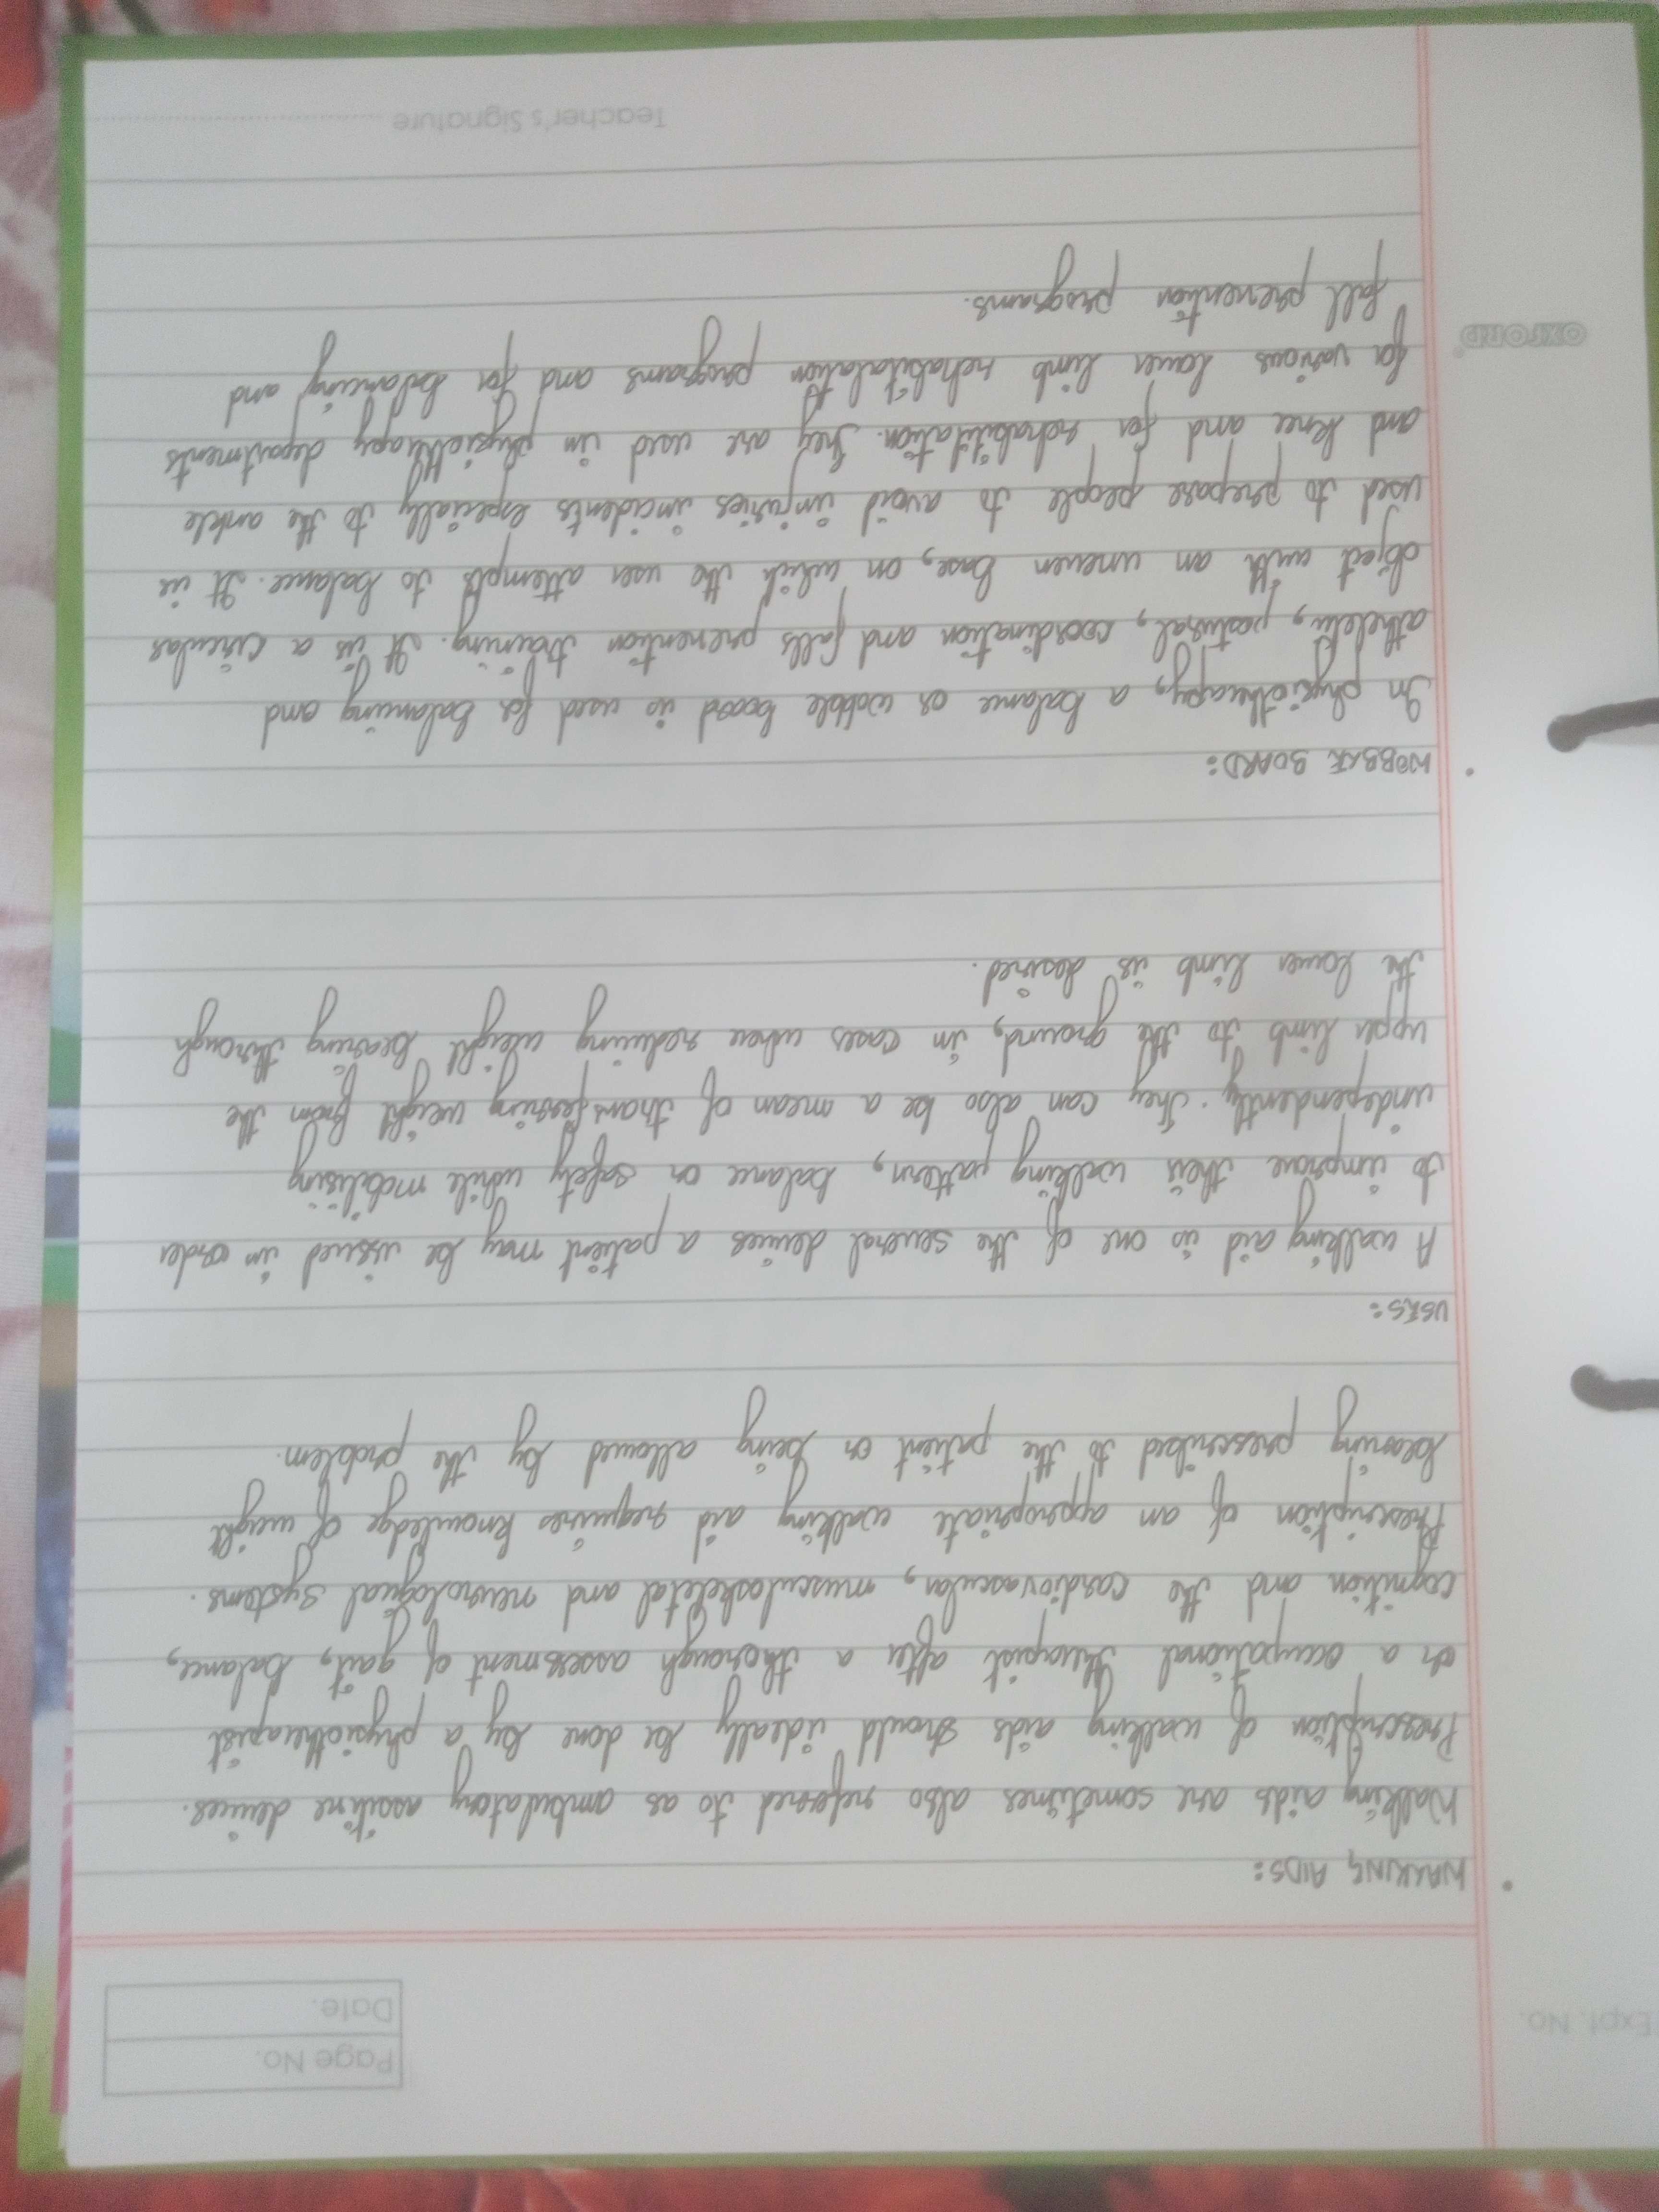 Expt. No.
Page No.
Date.
• WALKING AIDS:
Walking aids are sometimes also referred to as ambulatory assitive devices.
Prescription of walking aids should ideally be done by a physiotherapist
or a occupational therapist after a thorough assessment of gait, balance,
cognition and the cardiovascular, musculoskeletal and neurological systems.
Prescription of an appropriate walking aid requires knowledge of weight
bearing prescribed to the patient or being allowed by the problem.
USES:
A walking aid is one of the several devices a patient may be issued in order
to improve their walking pattern, balance or safety while mobilising
independently. They can also be a mean of transferring weight from the
upper limb to the ground, in cases where reducing weight bearing through
the lower limb is desired.
• WOBBLE BOARD:
In physiotherapy, a balance or wobble board is used for balancing and
atheletic, postural, coordination and falls prevention training. It is a circular
object with an uneven base, on which the user attempts to balance. It is
used to prepare people to avoid injuries incidents especially to the ankle
and knee and for rehabilitation. They are used in physiotherapy departments
for various lower limb rehabitalation programs and for balancing and
fall prevention programs.
OXFORD
Teacher's Signature